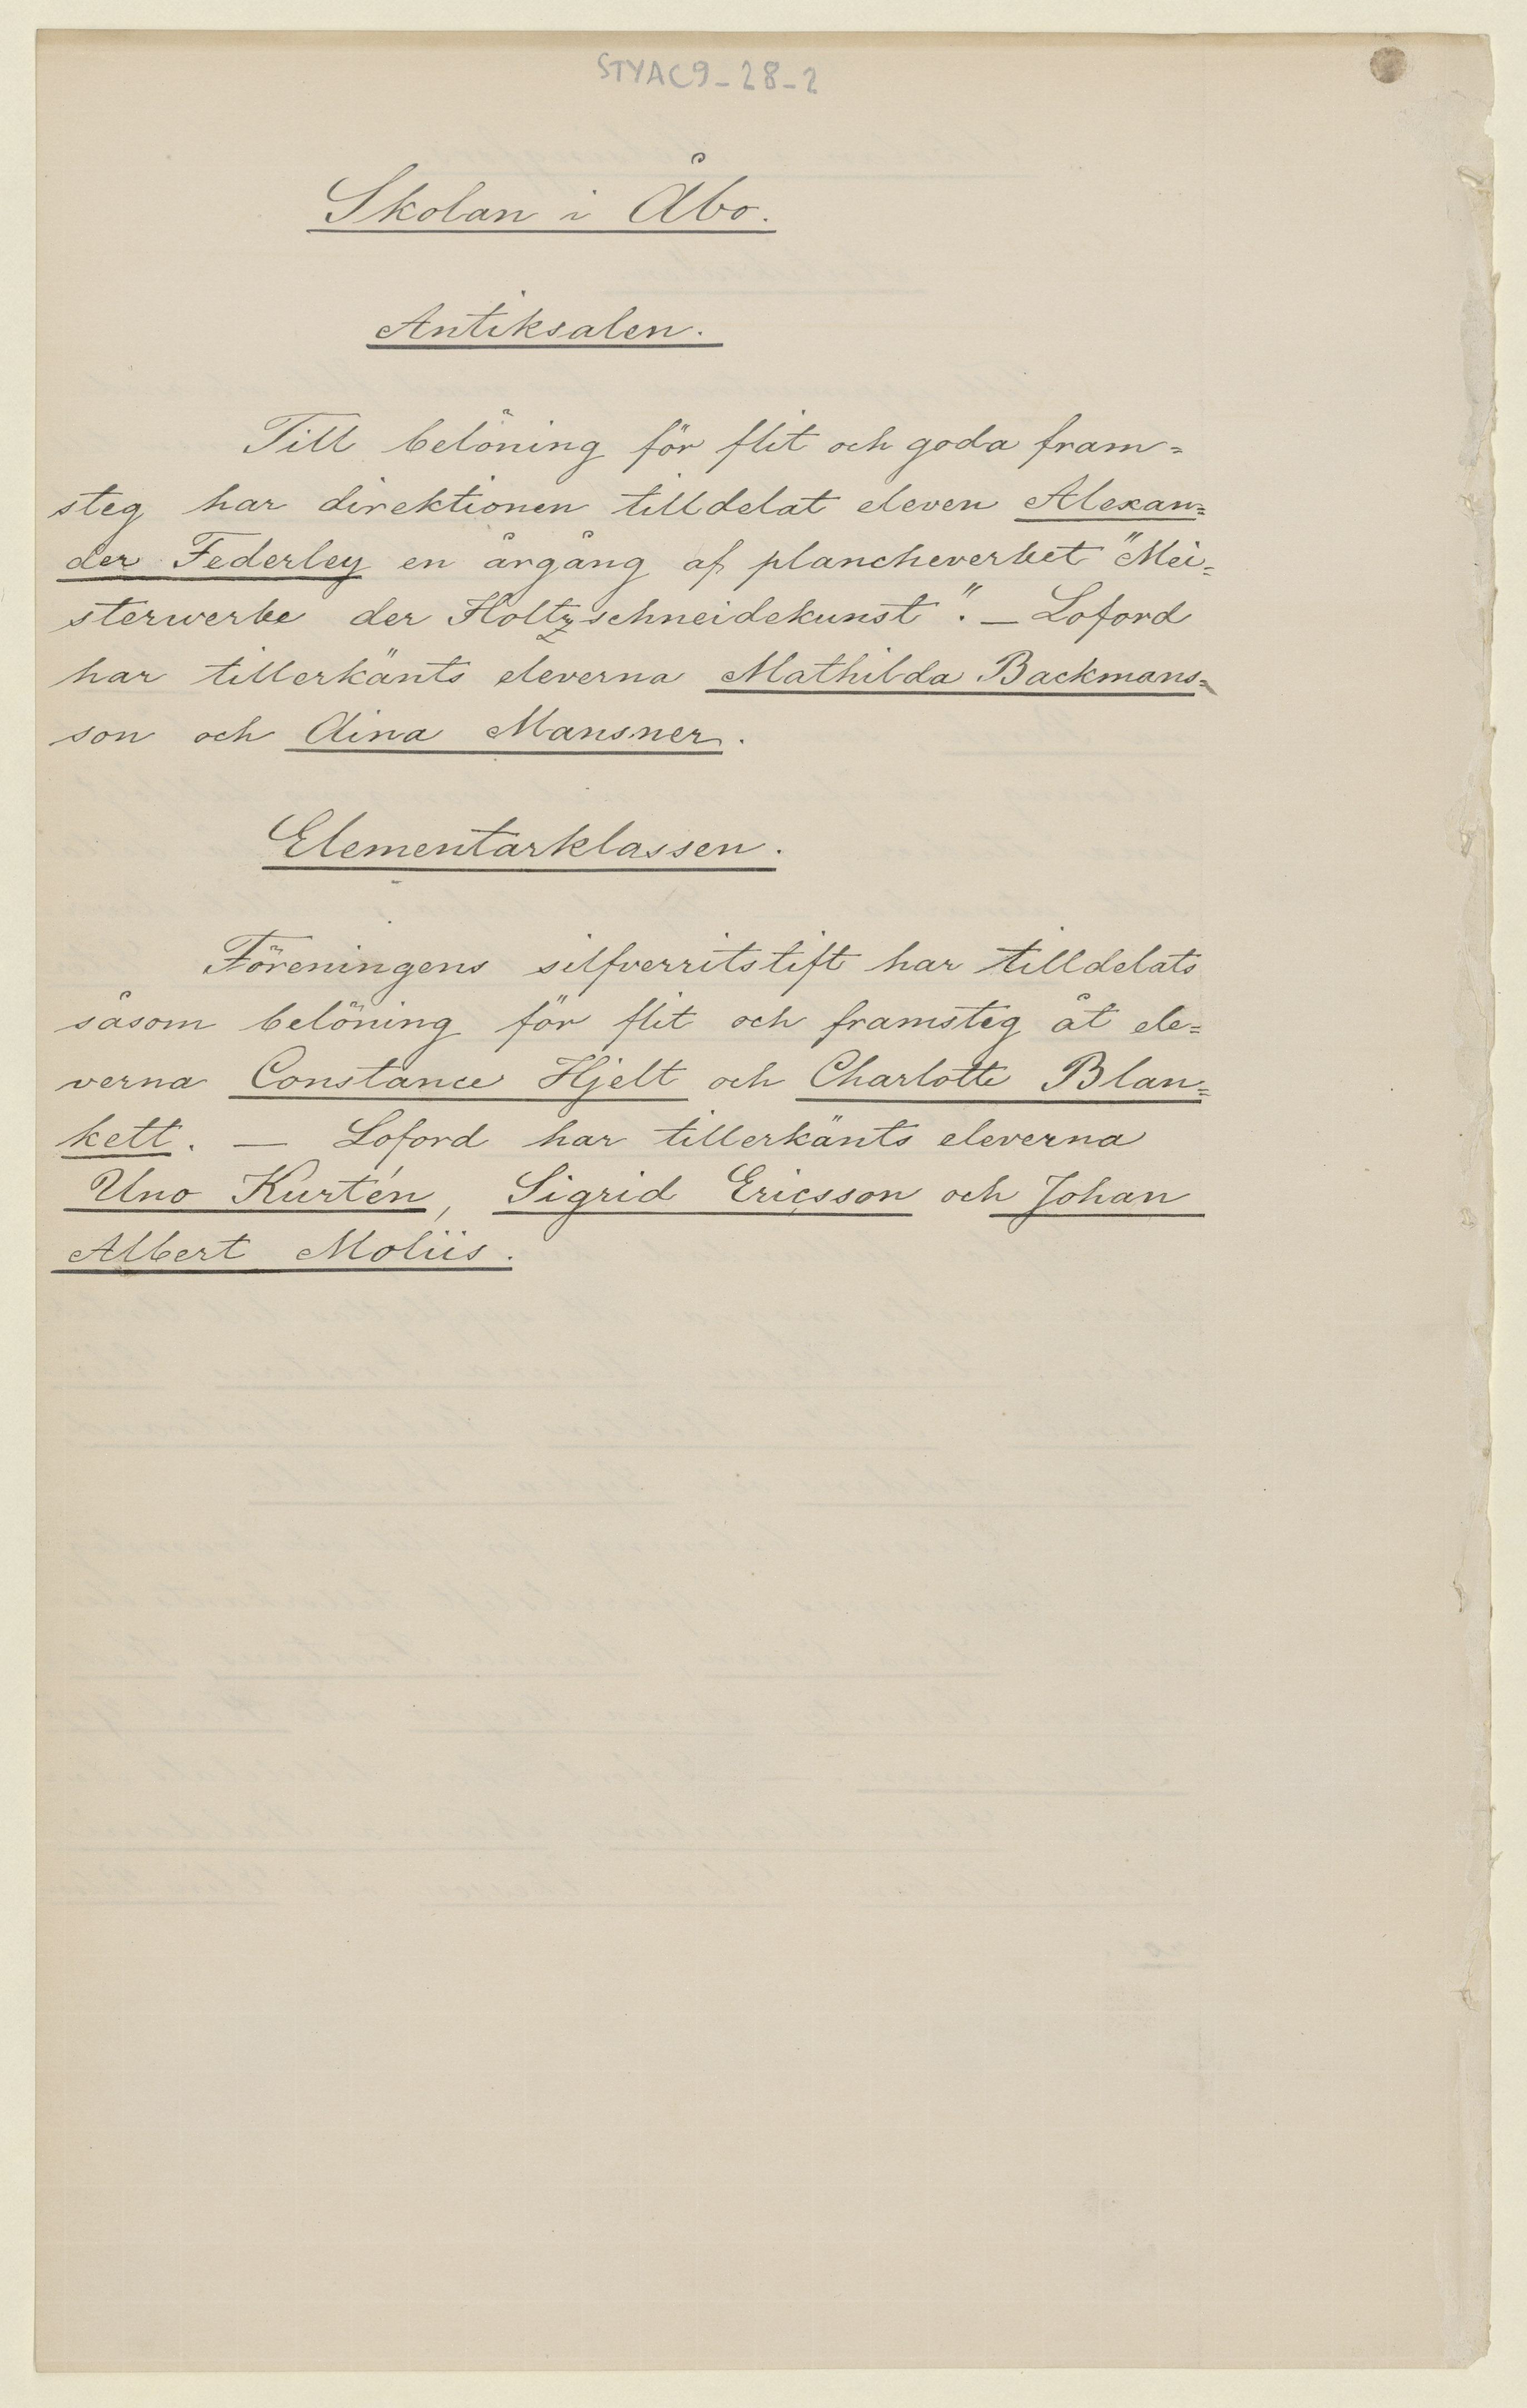 STYAC9-28-2
Skolan i Åbo.
Antiksalen.
Till belöning för flit och goda fram=
steg har direktionen tilldelat eleven Alexan=
der Federley en årgång af plancheverket "Mei=
sterwerke der Holtzschneidekunst". — Loford
har tillerkänts eleverna Mathilda Backmans=
son och Aina Mansner.
Elementarklassen.
Föreningens silfverritstift har tilldelats
såsom belöning för flit och framsteg åt ele=
verna Constance Hjelt och Charlotte Blan=
kett. — Loford har tillerkänts eleverna
Uno Kurtén, Sigrid Ericsson och Johan
Albert Moliis.